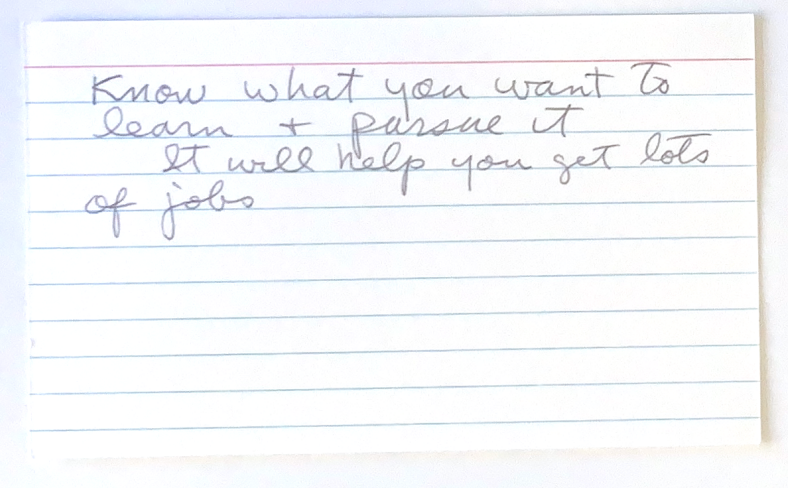 Know what you want to
learn + pursue it
It will help you get lots
of jobs